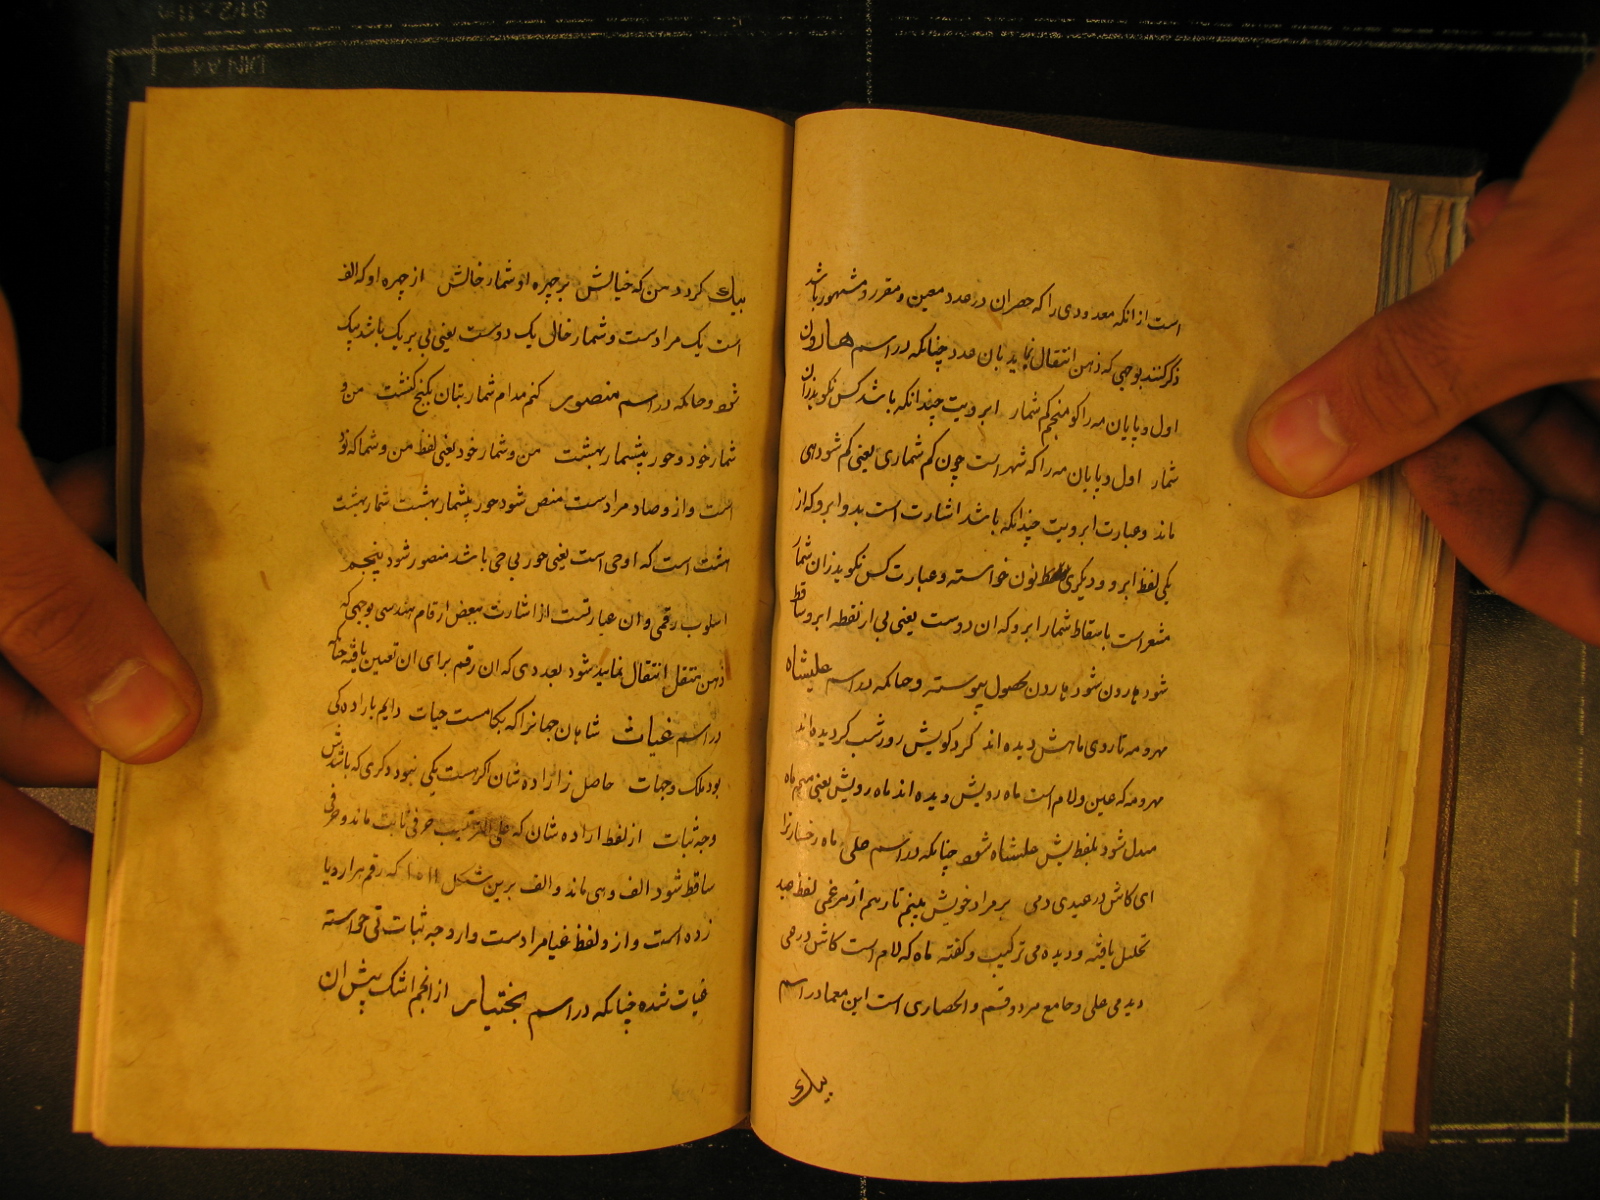 است از انکه معدودی را که حصر ان در عدد معین و مقرر و مشهور باشد
ذکر کنند بوجهی که ذهن انتقال نماید بان عدد چنانکه در اسم هارون
اول و پایان مه را کو منجم کم شمار ابرویت چندانکه باشد کس نکوید زان
شمار اول و پایان مه را که شهر است چون کم شماری یعنی کم شود هی
ماند و عبارت ابرویت چندانکه باشد اشارت است بدو ابرو که از
یکی لفظ ابرو و دیگری نون خواسته و عبارت کس نکوید زان شمار
مشعر است باسقاط شمار ابرو که ان دوست یعنی بی از نقطه ابرو ساقط
شود هارون شود هارون بحصول پیوسته و حانکه در اسم علیشاه
مهر و مه تا روی ماهش دیده اند کرد کویش روز شب کردیده اند
مهر و مه که عین و لام است ماه رویش دیده اند ماه رویش یعنی میم ماه
مبدل شود بلفظ یش علیشاه شود چنانکه در اسم علی ماه رخسار ترا
ای کاش در عیدی دمی بر مراد خویش بینم تا رهم از هر غمی لفظ عید
تحلیل یافته و دیده می ترکیب و کفته ماه که لام است کاش در می
دیدمی علی و جامع هر دو قسم و انحصاری است این معما در اسم
بیک
بیک کرد ذهن که خیالش بر چهره او شمار خالش از چهره او که الف
است یک مرادست و شمار خال یک دوست یعنی بی بر یک باشد بیک
شود و حانکه در اسم منصور کنم مدام شمار بتان بکنج کنشت من و
شمار خود و حور بیشمار بهشت من و شمار خود یعنی لفظ من و شما که نود
است و از و صاد مرادست منص شود حور بیشمار بهشت شمار بهشت
هشت است که او حی است یعنی حور بی حی باشد منصور شود پنجم
اسلوب رقمی و ان عبارتست از اشارت ببعض ارقام هندسی بوجهی که
ذهن منتقل انتقال نماید شود بعددی که ان رقم برای ان تعیین یافته حانکه
در اسم غیاث شاهان جهانرا که بکامست حیات دایم باراده کی
بود ملک و جهات حاصل ز اراده شان اکر هست یکی نبود دکری که باشدش
وجه ثبات از لفظ اراده شان که علی الترتیب حرفی ثابت ماند و حرفی
ساقط شود الف و هی ماند و الف برین شکل ۱۰۱۱ که رقم هزار و یا
زده است و از و لفظ غیا مرادست و از وجه ثبات ثی خواسته
غیاث شده چنانکه در اسم بختیار از انجم اشک پیش ان